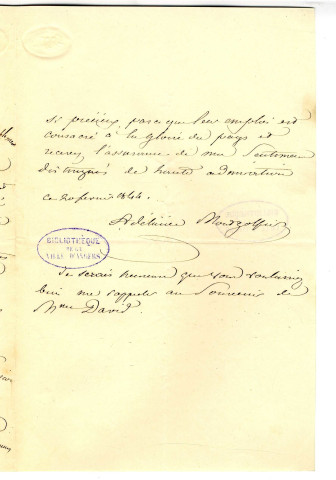 si précieux parce que leur emploi est
consacré à la gloire du pays et
recevez l'assurance de mes sentimens
distingués de haute admiration
ce 20 février 1844
Adélaïde Montgolfier
BIBLIOTHÈQUE
DE LA
VILLE D'ANGERS
Je serais heureuse que vous voulussiez
bien me rappeler au souvenir de
Mme David.